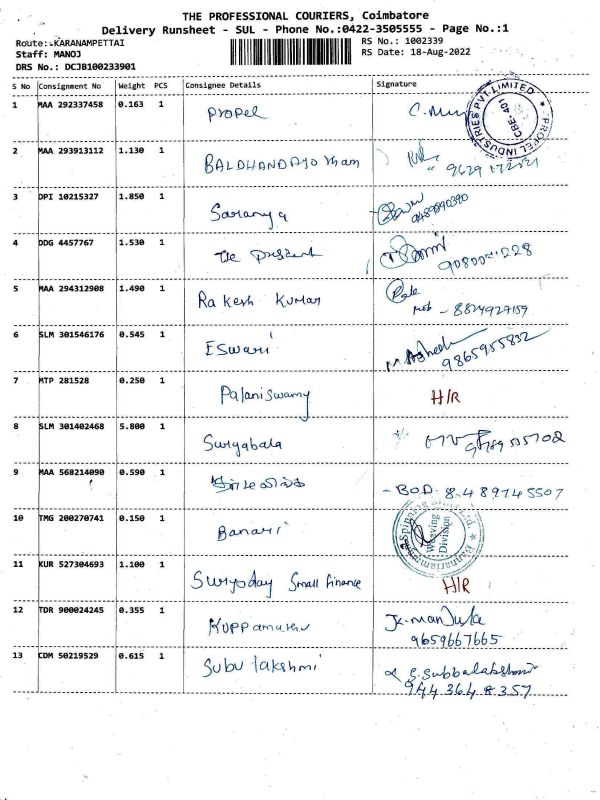 THE PROFESSIONAL COURIERS, Coimbatore
Delivery Runsheet - SUL - Phone No.:0422-3505555 - Page No.:1
Route:-KARANAMPETTAI
Staff: MANOJ
DRS No.: DCJB100233901
RS No.: 1002339
RS Date: 18-Aug-2022
S No Consignment No Weight PCS Consignee Details Signature
1 MAA 292337458 0.163 1 Propel
PROPEL INDUSTRIES PVT.LIMITED
CBE- 401
2 MAA 293913112 1.130 1
3 DPI 10215327 1.850 1 Saranya
4 DDG 4457767 1.530 1
5 MAA 294312908 1.490 1 Rakesh Kumar
mob - 8824927159
6 SLM 301546176 0.545 1 Eswari M. Ashok
9865955832
7 MTP 281528 0.250 1 Palaniswamy H/R
8 SLM 301402468 5.800 1 Suryabala
9 MAA 568214090 0.590 1 - BOD 8489745507
10 TMG 200270741 0.150 1 Banari
Weaving
Division
11 KUR 527304693 1.100 1 Suryoday Small Finance H/R
12 TDR 900024245 0.355 1 Kuppamuthu K. Manjula
9659667665
13 CDM 50219529 0.615 1 Subu lakshmi S. Subbalakshmi
944 364 8357